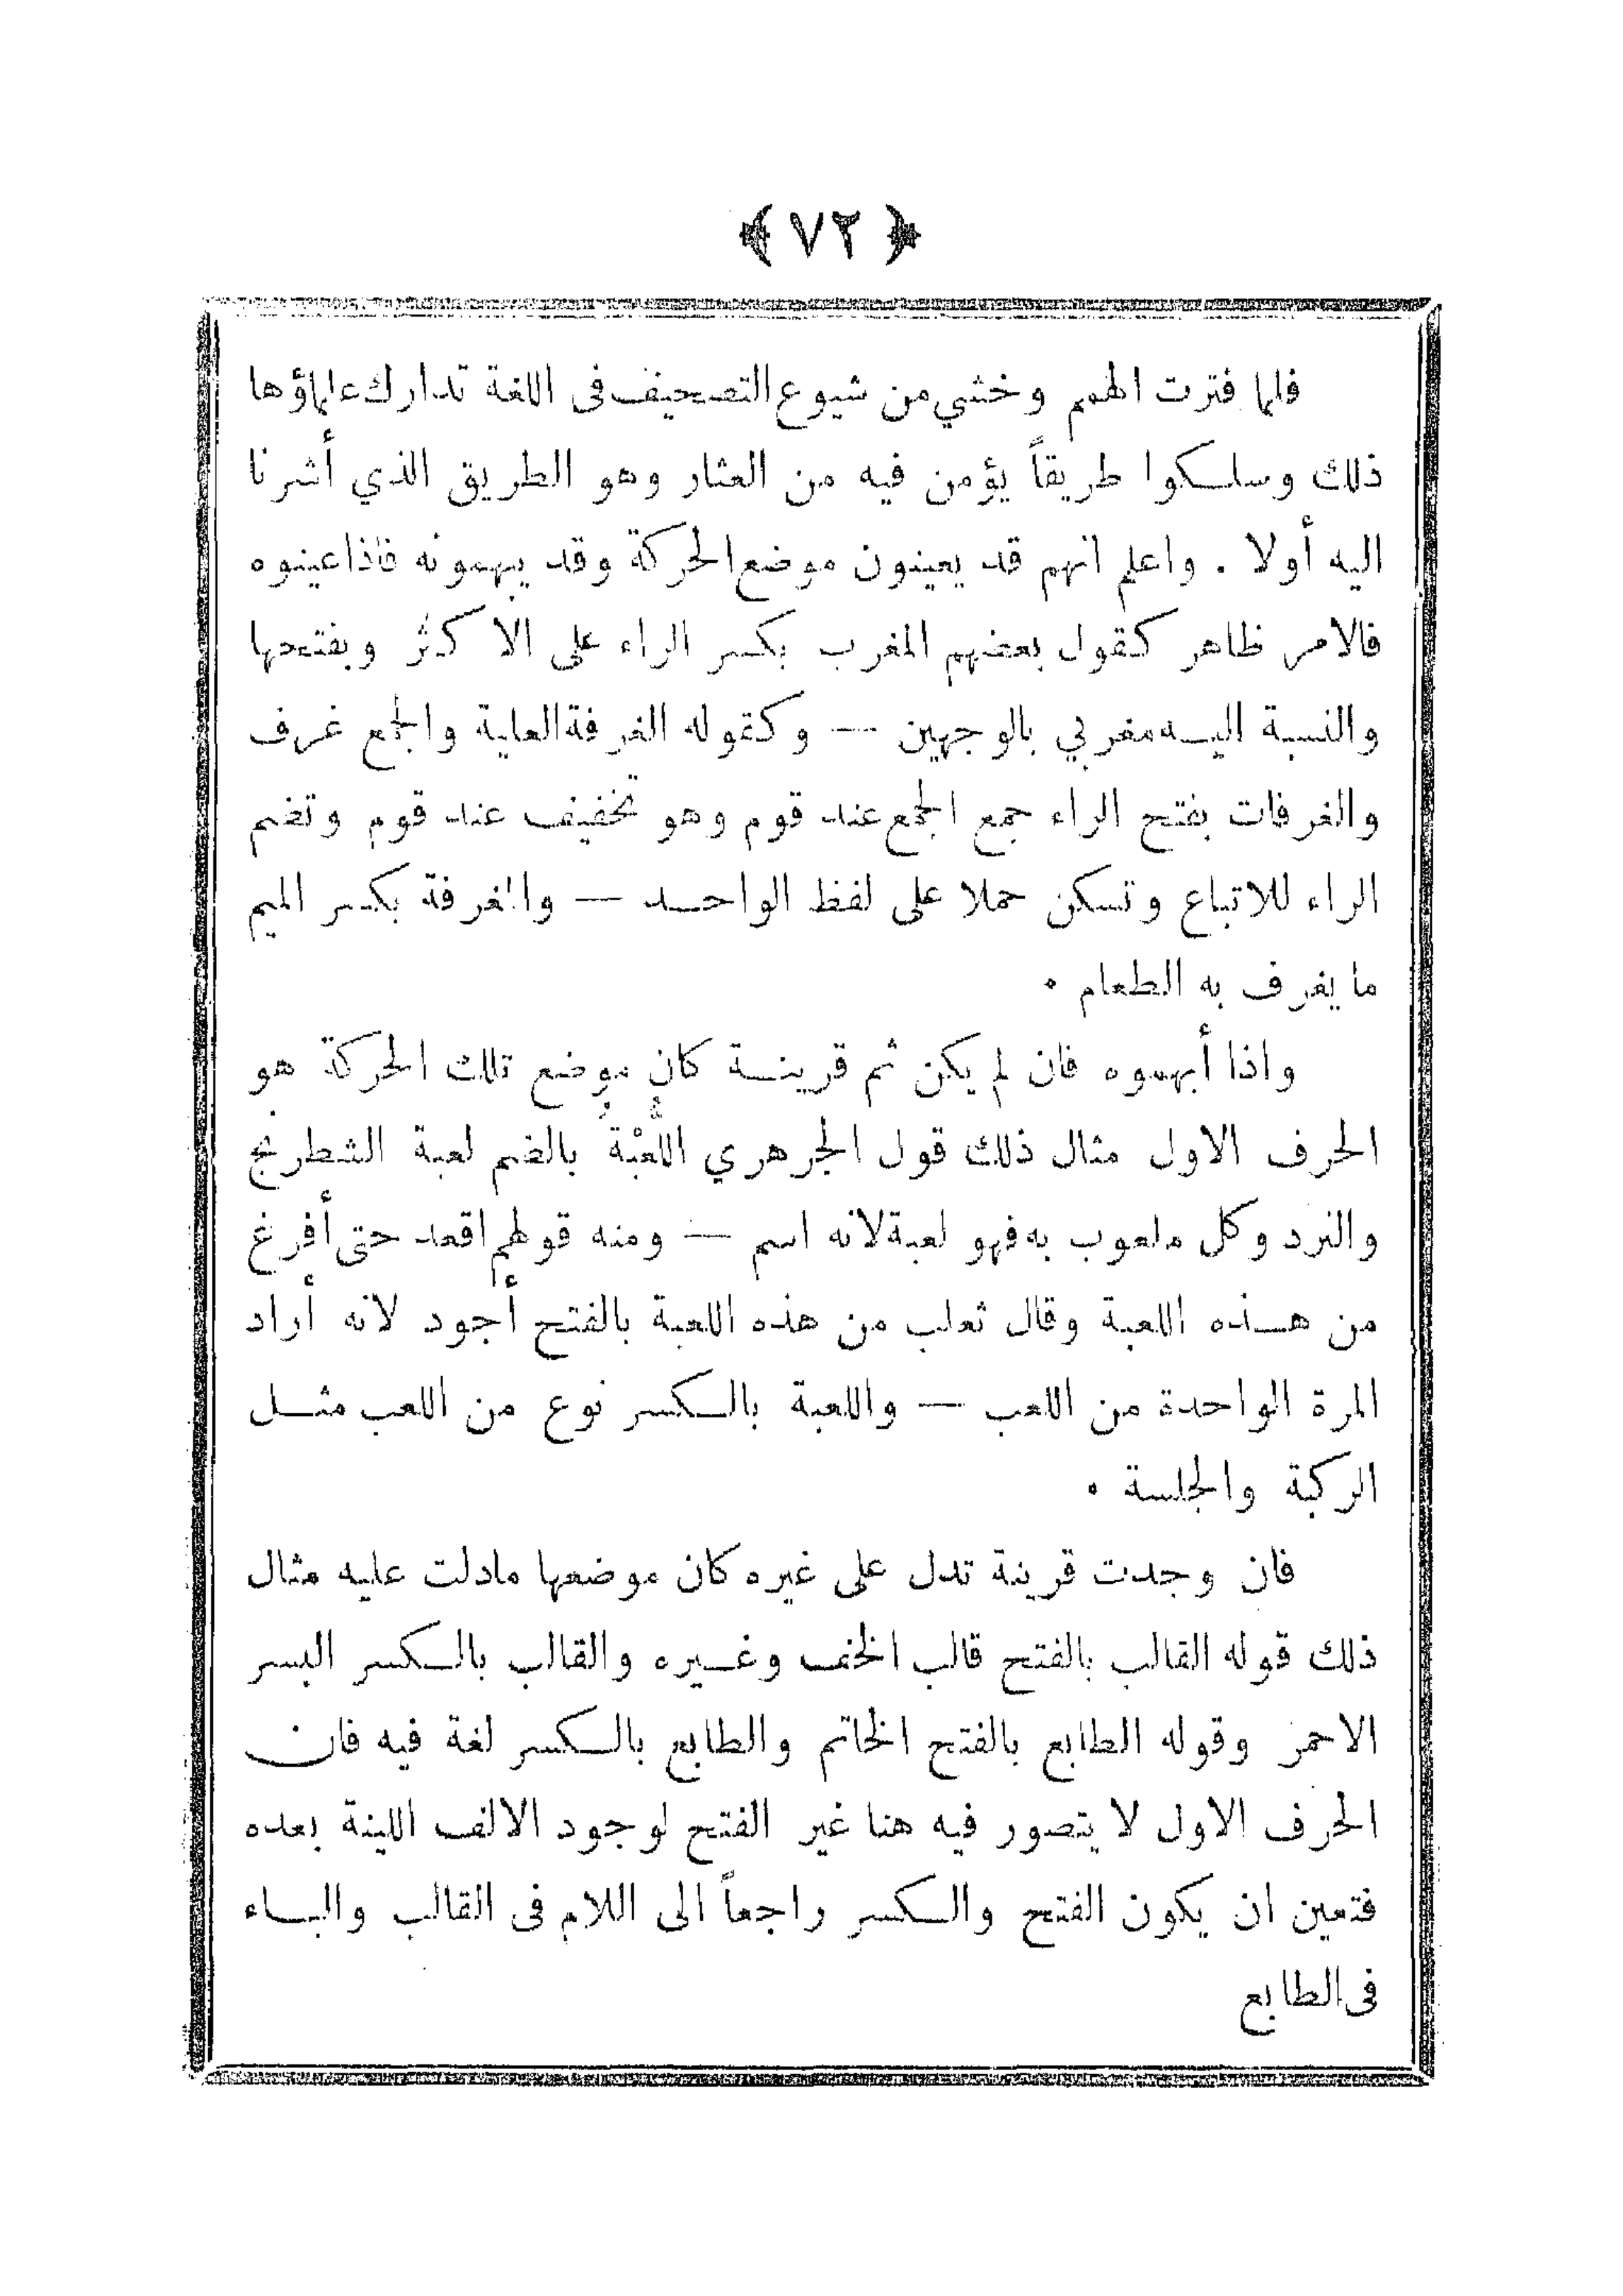 ﴿ ٧٢ ﴾
فلما فترت الهمم وخشي من شيوع التصحيف فى اللغة تدارك علماؤها
ذلك وسلكوا طريقاً يؤمن فيه من العثار وهو الطريق الذي أشرنا
اليه أولا . واعلم انهم قد يعينون موضع الحركة وقد يبهمونه فاذا عينوه
فالامر ظاهر كقول بعضهم المغرب بكسر الراء على الاكثر وبفتحها
والنسبة اليه مغربي بالوجهين — وكقوله الغرفة العلية والجمع غرف
والغرفات بفتح الراء جمع الجمع عند قوم وهو تخفيف عند قوم وتضم
الراء للاتباع وتسكن حملا على لفظ الواحد — والمغرفة بكسر الميم
ما يغرف به الطعام .
واذا أبهموه فان لم يكن ثم قرينة كان موضع تلك الحركة هو
الحرف الاول مثال ذلك قول الجوهري اللُّعْبَةُ بالضم لعبة الشطرنج
والنرد وكل ملعوب به فهو لعبة لانه اسم — ومنه قولهم اقعد حتى أفرغ
من هذه اللعبة وقال ثعلب من هذه اللعبة بالفتح أجود لانه أراد
المرة الواحدة من اللعب — واللعبة بالكسر نوع من اللعب مثل
الركبة والجلسة .
فان وجدت قرينة تدل على غيره كان موضعها مادلت عليه مثال
ذلك قوله القالب بالفتح قالب الخف وغيره والقالب بالكسر البسر
الاحمر وقوله الطابع بالفتح الخاتم والطابع بالكسر لغة فيه فان
الحرف الاول لا يتصور فيه هنا غير الفتح لوجود الالف اللينة بعده
فتعين ان يكون الفتح والكسر راجعاً الى اللام فى القالب والباء
فى الطابع